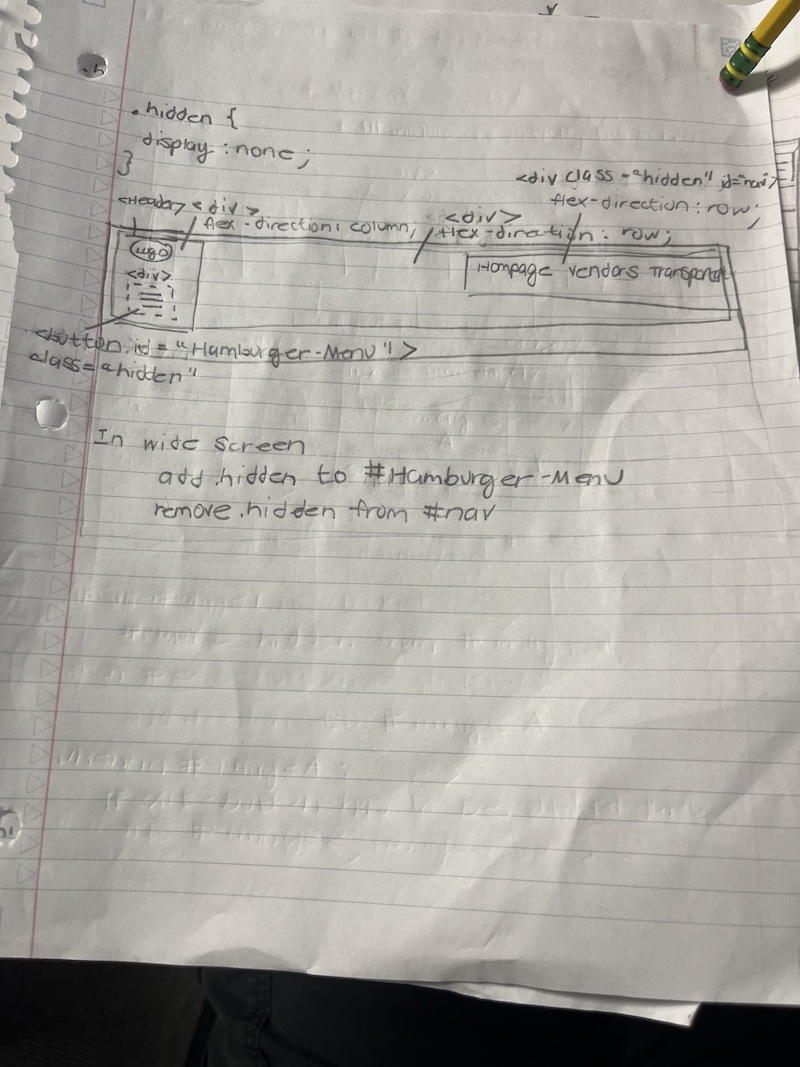 .hidden {
display : none;
}
<div class = "hidden" id="nav>
flex-direction : row;
<Header> <div>
flex-direction: column;
<div>
flex-direction : row;
Logo
<div>
Hompage Vendors Transportat
<button id = "Hamburger-Menu">
class= "hidden"
In wide screen
add .hidden to #Hamburger-Menu
remove .hidden from #nav